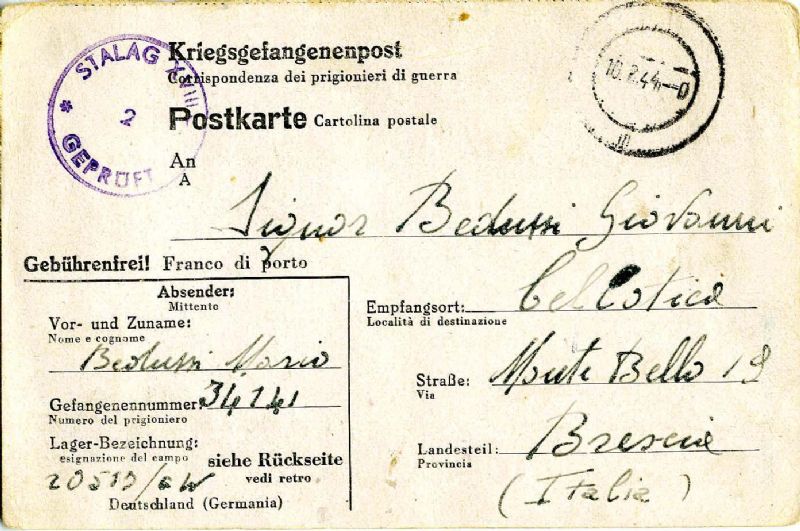 STALAG XVIII
2
* GEPRÜFT
Kriegsgefangenenpost
Corrispondenza dei prigionieri di guerra
10.2.44.-0
Postkarte Cartolina postale
An
A
Signor Bedussi Giovanni
Gebührenfrei! Franco di porto
Absender:
Mittente
Vor- und Zuname:
Nome e cognome
Bedussi Mario
Gefangenennummer:
Numero del prigioniero
Lager-Bezeichnung:
esignazione del campo
siehe Rückseite
vedi retro
Deutschland (Germania)
Empfangsort: Cellatica
Località di destinazione
Straße: Monte Bello 19
Via
Landesteil: Brescia
Provincia
(Italia)